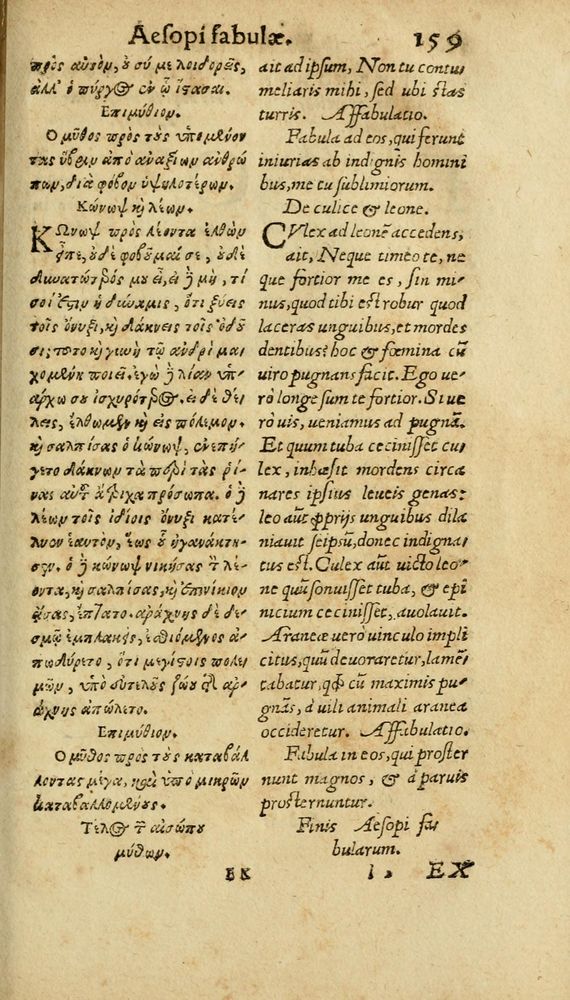 Aesopi fabulæ. 159
πρὸς αὐτὸμ, ὀ σύ με λοιδορεῖς,
ἀλλ' ὁ πύργος ἐν ᾧ ἵστασαι.
Επιμύθιομ.
Ο μῦθος πρὸς τοὺς ὑπομένον
τας ὕβριμ ἀπὸ ἀναξίωμ ἀνθρώ
πωμ, διὰ φόβομ ὑψηλοτέρωμ.
Κώνωψ κὶ λέωμ.
ΚΩνωψ πρὸς λέοντα ἐλθὼμ
εἶπε, οὐδὲ φοβοῦμαί σε, οὐδὲ
δυνατώτερός μου εἶ, εἰ δὲ μὴ, τί
σοί ἐστιμ ἡ δύναμις, ὅτι ξύεις
τοῖς ὄνυξι, κὶ δάκνεις τοῖς ὀδοῦ
σι; τοῦτο κὶ γυνὴ τῷ ἀνδρὶ μα
χομένη ποιεῖ. ἐγὼ δὲ λίαν ὑπ-
άρχω σου ἰσχυρότερος. εἰ δὲ θέ
λεις, ἔλθωμεν κὶ εἰς πόλεμομ.
κὶ σαλπίσας ὁ κώνωψ, ἐνεπή
γετο δάκνωμ τὰ περὶ τὰς ῥί-
νας αὐτοῦ ἄτριχα πρόσωπα. ὁ δὲ
λέωμ τοῖς ἰδίοις ὄνυξι κατέ-
λυομ ἑαυτὸμ, ἕως οὗ ἠγανάκτη-
σεμ. ὁ δὲ κώνωψ νικήσας τὸμ λέ-
οντα, κὶ σαλπίσας, κὶ ἐπινίκιομ
ᾄσας, ἔπτατο. ἀράχνης δὲ δε-
σμῷ ἐμπλακεὶς, ἐσθιόμενος ἀ-
πωδύρετο, ὅτι μεγίστοις πολε
μῶμ, ὑπὸ εὐτελοῦς ζώου τῆς ἀρ-
άχνης ἀπώλετο.
Επιμύθιομ.
Ο μῦθος πρὸς τοὺς καταβάλ
λοντας μέγα, καὶ ὑπὸ μικρῶμ
καταβαλλομένους.
Τέλος τῶν αἰσώπου
μύθωμ.
ΕΚ
ait ad ipsum, Non tu contu
meliaris mihi, sed ubi stas
turris. Affabulatio.
Fabula ad eos, qui ferunt
iniurias ab indignis homini
bus, metu sublimiorum.
De culice & leone.
CVlex ad leonẽ accedens,
ait, Neque timeo te, ne
que fortior me es, sin mi-
nus, quod tibi est robur quod
laceras unguibus, et mordes
dentibus? hoc & fœmina cũ
uiro pugnans facit. Ego ue-
rò longe sum te fortior. Si ue
rò uis, ueniamus ad pugnã.
Et quum tuba cecinisset cu-
lex, inhæsit mordens circa
nares ipsius leueis genas:
leo aũt ꝓprijs unguibus dila
niauit seipsũ, donec indigna
tus est. Culex aũt uicto leo-
ne quũ sonuisset tuba, & epi
nicium cecinisset, auolauit.
Araneæ uero uinculo impli
citus, quũ deuoraretur, lamẽ
tabatur, qđ cũ maximis pu-
gnãs, à uili animali aranea
occideretur. Affabulatio.
Fabula in eos, qui proster
nunt magnos, & à paruis
prosternuntur.
Finis Aesopi fa
bularum.
l 2 EX